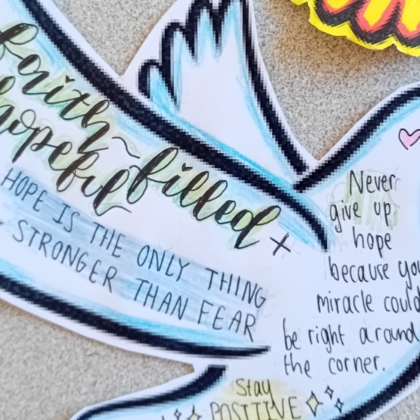 faith-filled +
hopeful
HOPE IS THE ONLY THING
STRONGER THAN FEAR
Never
give up
hope
because you
miracle could
be right around
the corner.
Stay
POSITIVE